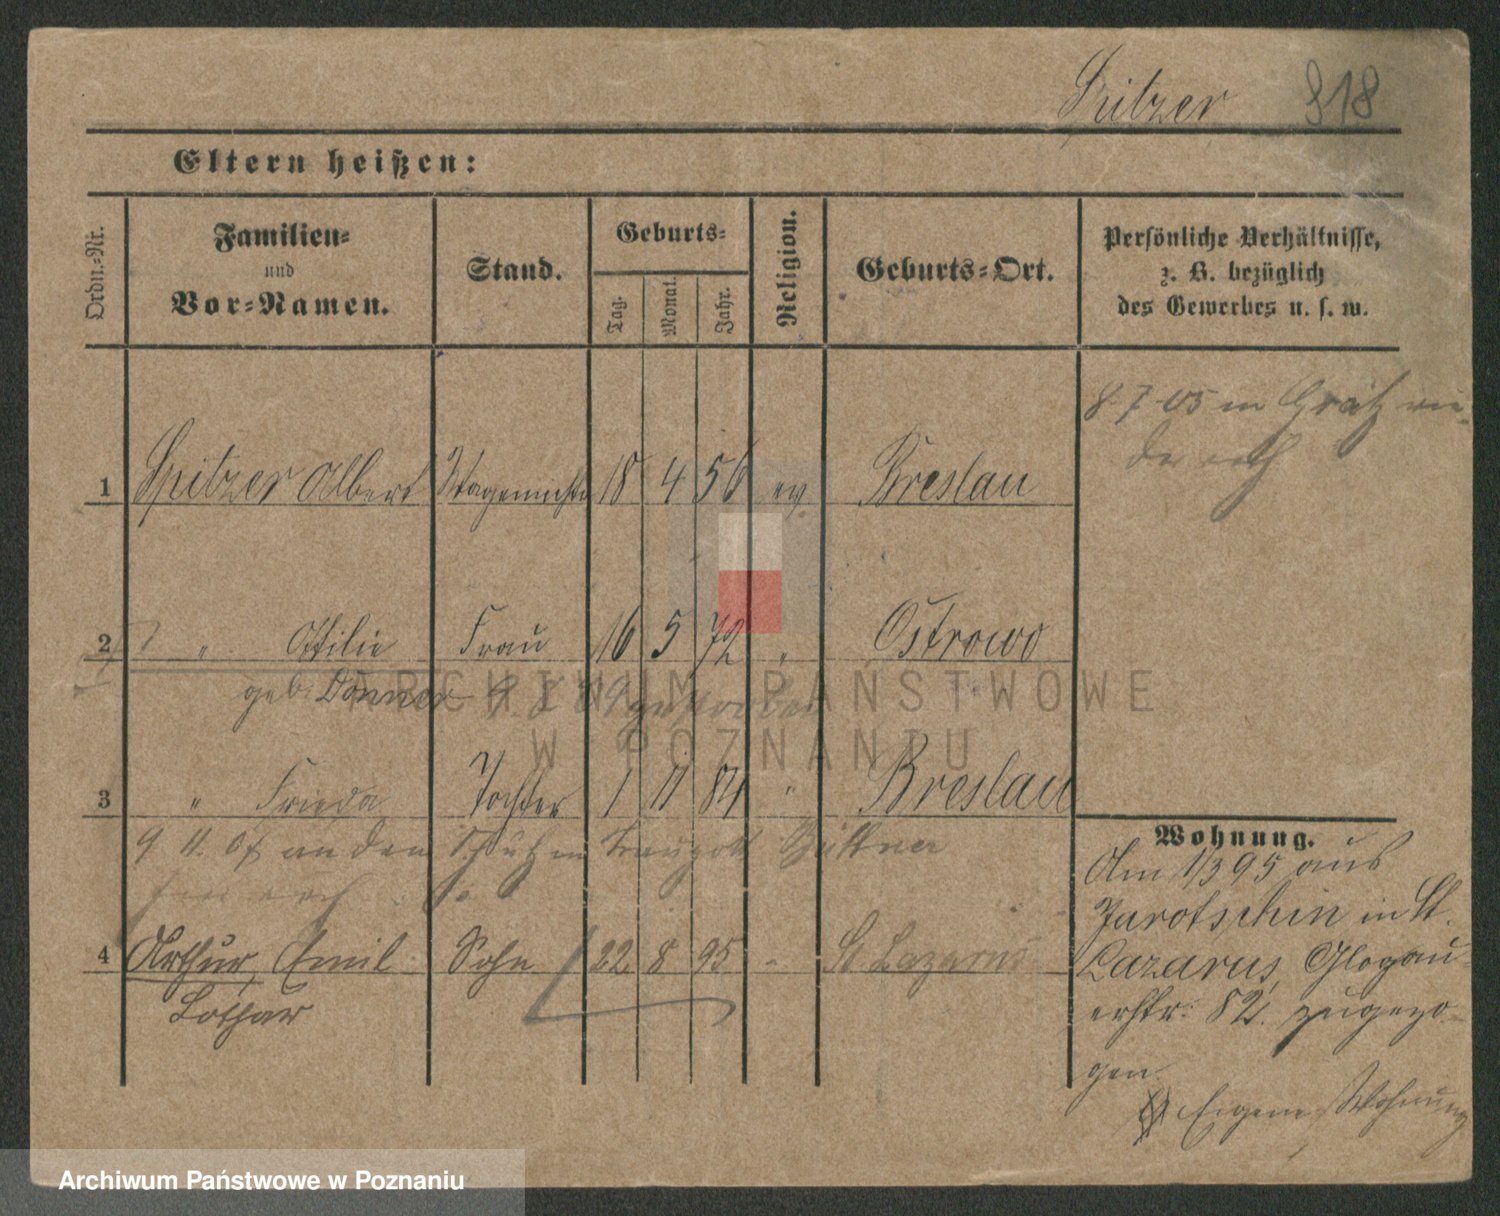 Spitzer 818
Eltern heißen:
Ordn.-Nr. Familien- und Vor-Namen. Stand. Geburts- Tag. Monat. Jahr. Religion. Geburts-Ort. Persönliche Verhältnisse, z. B. bezüglich des Gewerbes u. s. w.
8-7-05 in Grätz
1 Spitzer Albert 18 4 56 ev Breslau
2 " Ottilie Frau 16 5 72 " Ostrowo
geb. Donner gestorben
ARCHIWUM PAŃSTWOWE
W POZNANIU
3 " Frieda Tochter 1 11 84 " Breslau
9 11 05 an den Traugott Büttner
4 Arthur, Emil Sohn 22 8 95 " St Lazarus
Lothar
Wohnung.
Am 1/3 95 aus
Jarotschin in St.
Lazarus, Glogau
erstr. 82. zugezo
gen.
Eigene Wohnung
Archiwum Państwowe w Poznaniu